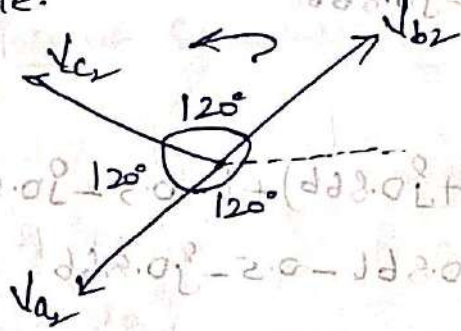 V_{b2}
V_{c2}
120°
120°
120°
V_{a2}